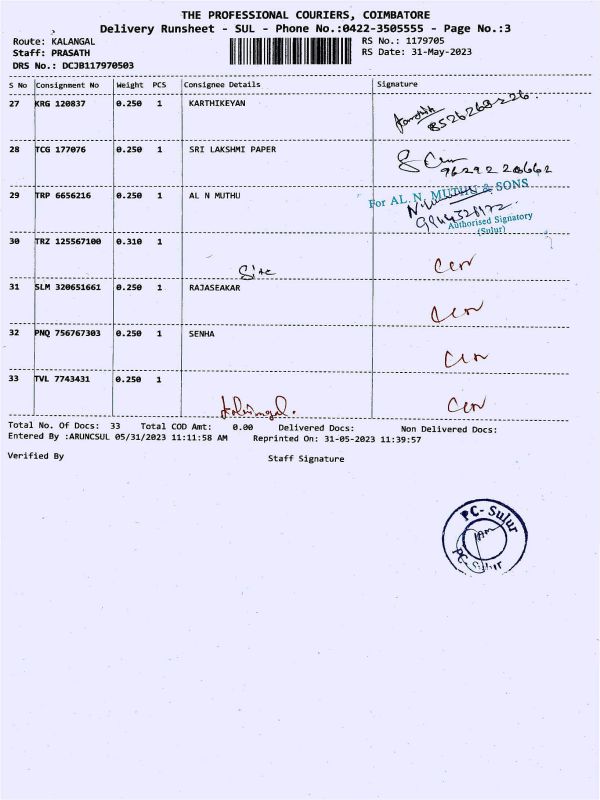 THE PROFESSIONAL COURIERS, COIMBATORE
Delivery Runsheet - SUL - Phone No.:0422-3505555 - Page No.:3
Route: KALANGAL RS No.: 1179705
Staff: PRASATH RS Date: 31-May-2023
DRS No.: DCJB117970503
S No Consignment No Weight PCS Consignee Details Signature
27 KRG 120837 0.250 1 KARTHIKEYAN
8526268226
28 TCG 177076 0.250 1 SRI LAKSHMI PAPER
9629220662
29 TRP 6656216 0.250 1 AL N MUTHU
For AL. N. MUTHU & SONS
Authorised Signatory
(Sulur)
30 TRZ 125567100 0.310 1
Site
31 SLM 320651661 0.250 1 RAJASEAKAR
32 PNQ 756767303 0.250 1 SENHA
33 TVL 7743431 0.250 1
Total No. Of Docs: 33 Total COD Amt: 0.00 Delivered Docs: Non Delivered Docs:
Entered By :ARUNCSUL 05/31/2023 11:11:58 AM Reprinted On: 31-05-2023 11:39:57
Verified By Staff Signature
PC- Sulur
PC- Sulur